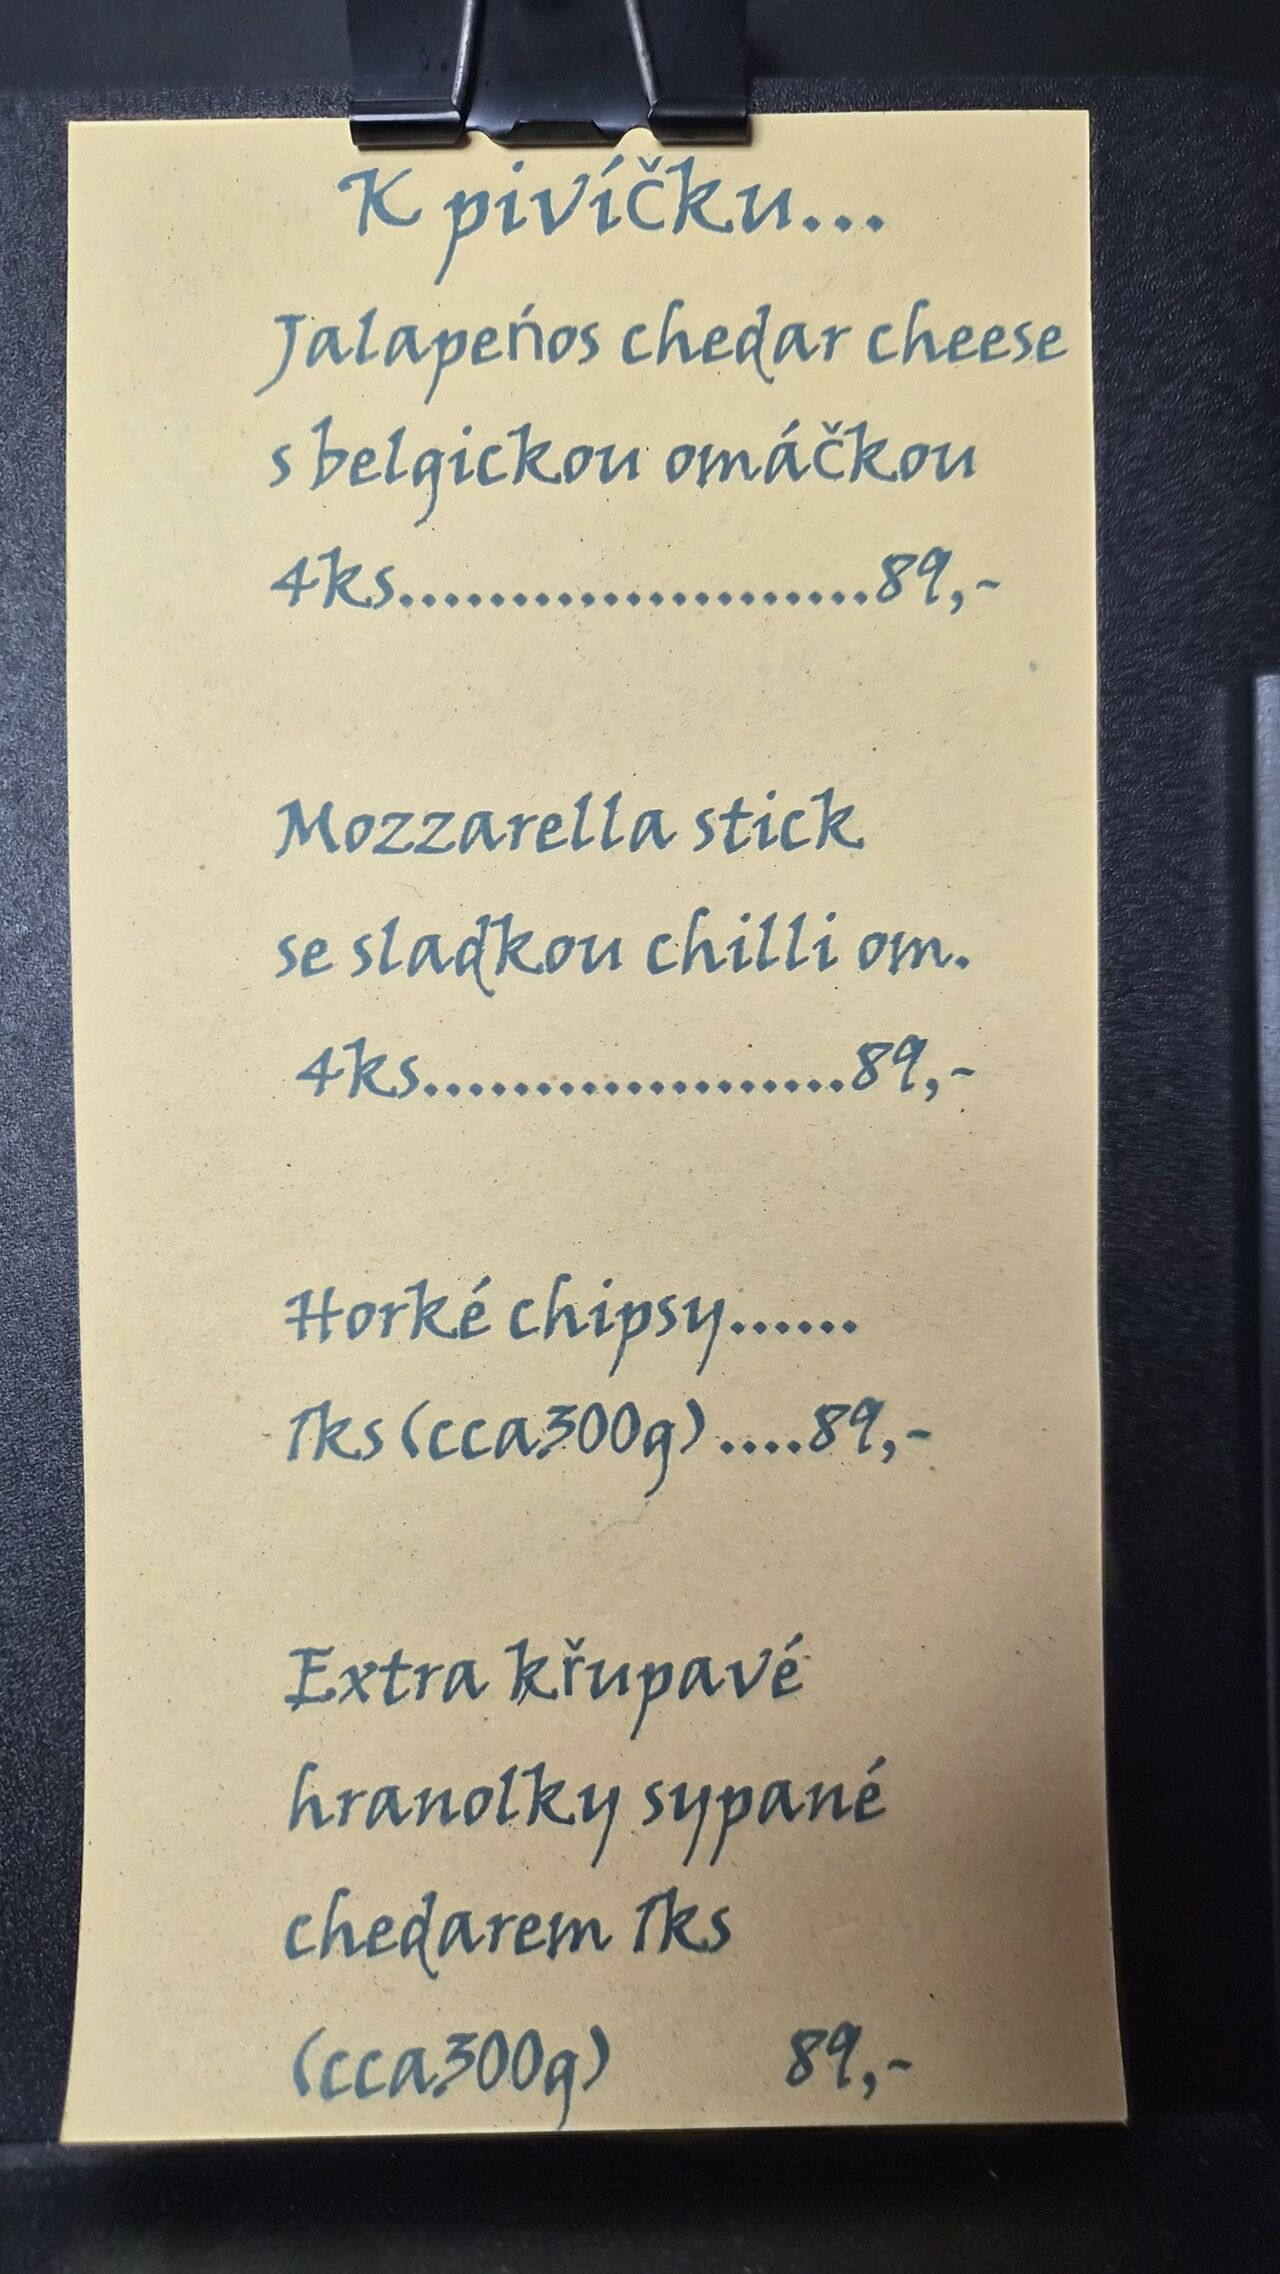 K pivíčku...
Jalapeńos chedar cheese
s belgickou omáčkou
4ks.....................89,-
Mozzarella stick
se sladkou chilli om.
4ks...................89,-
Horké chipsy......
1ks (cca300g) ....89,-
Extra křupavé
hranolky sypané
chedarem 1ks
(cca300g) 89,-